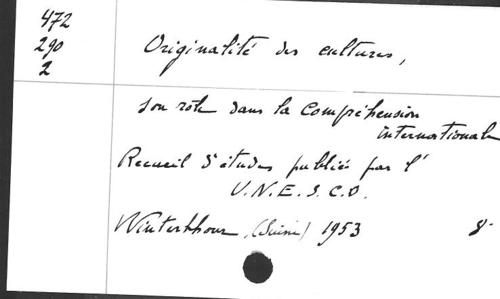 472
290
2
Originalité des cultures,
son role dans la compréhension
internationale
Recueil d'études publiés par l'
U.N.E.S.C.O.
Winterthour (Suisse) 1953 8-